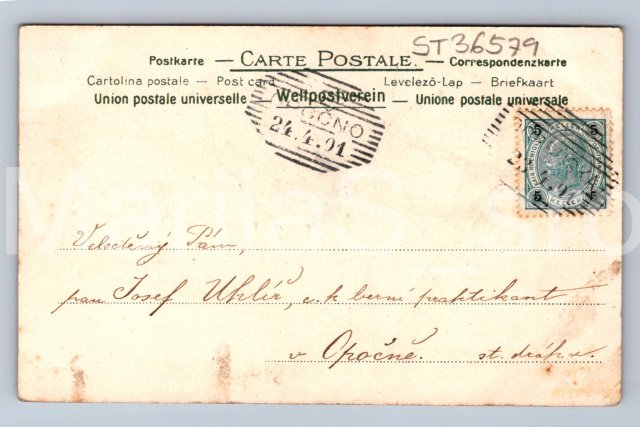 ST36579
Postkarte — CARTE POSTALE. — Correspondenzkarte
Cartolina postale — Post card Levelező-Lap — Briefkaart
Union postale universelle — Weltpostverein — Unione postale universale
OPOČNO
24.4.01
5 5
5 5
Velectěný Pán,
pan Josef Uhlíř, c. k. berní praktikant
v Opočně. st. dráha.